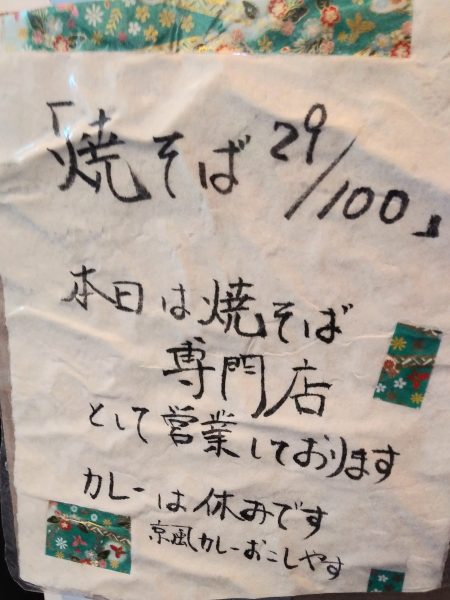 「焼そば 29/100」
本日は焼そば
専門店
として営業しております
カレーは休みです
京風カレーおこしやす